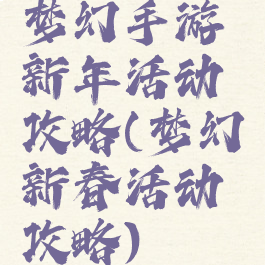 梦幻手游
新年活动
攻略(梦幻
新春活动
攻略)